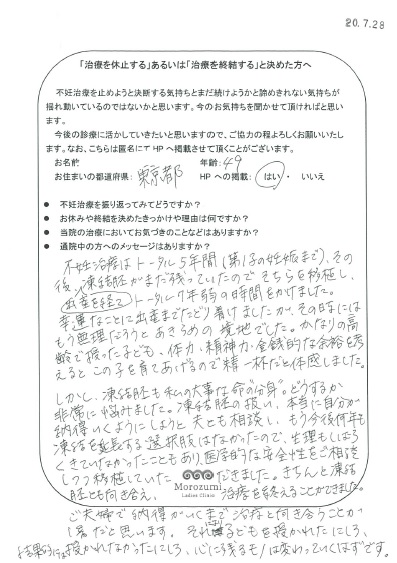 20.7.28
「治療を休止する」あるいは「治療を終結する」と決めた方へ
不妊治療を止めようと決断する気持ちとまだ続けようかと諦めきれない気持ちが
揺れ動いているのではないかと思います。今のお気持ちを聞かせて頂ければと思い
ます。
今後の診療に活かしていきたいと思いますので、ご協力の程よろしくお願いいたし
ます。なお、こちらは匿名にて HP へ掲載させて頂くことがございます。
お名前 年齢:49
お住まいの都道府県:東京都 HP への掲載: はい ・ いいえ
● 不妊治療を振り返ってみてどうですか?
● お休みや終結を決めたきっかけや理由は何ですか?
● 当院の治療においてお気づきのことなどはありますか?
● 通院中の方へのメッセージはありますか?
不妊治療はトータル5年間(第1子の妊娠まで)、その
後、凍結胚がまだ残っていたのでそちらを移植し、
出産を経てトータル7年弱の時間をかけました。
幸運なことに出産までたどり着けましたが、その時には
もう無理だろうとあきらめの境地でした。かなりの高
齢で授った子ども、体力・精神力・金銭的な余裕を考
えるとこの子を育てあげるので精一杯だと体感しました。
しかし、凍結胚も私の大事な命の"分身"。どうするか
非常に悩みました。凍結胚の扱い、本当に自分が
納得いくようにしようと夫とも相談し、もう今後何年も
凍結を延長する選択肢はなかったので、生理もしばらく
きていなかったこともあり、医学的な安全性をご相談
しつつ移植していただきました。きちんと凍結
胚とも向き合え、治療を終えることができました。
Morozumi
Ladies Clinic
ご夫婦で納得がいくまで治療と向き合うことが
1番だと思います。それで子どもを授かれたにしろ、
結果的には授かれなかったにしろ、心に残るモノは変わっていくはずです。